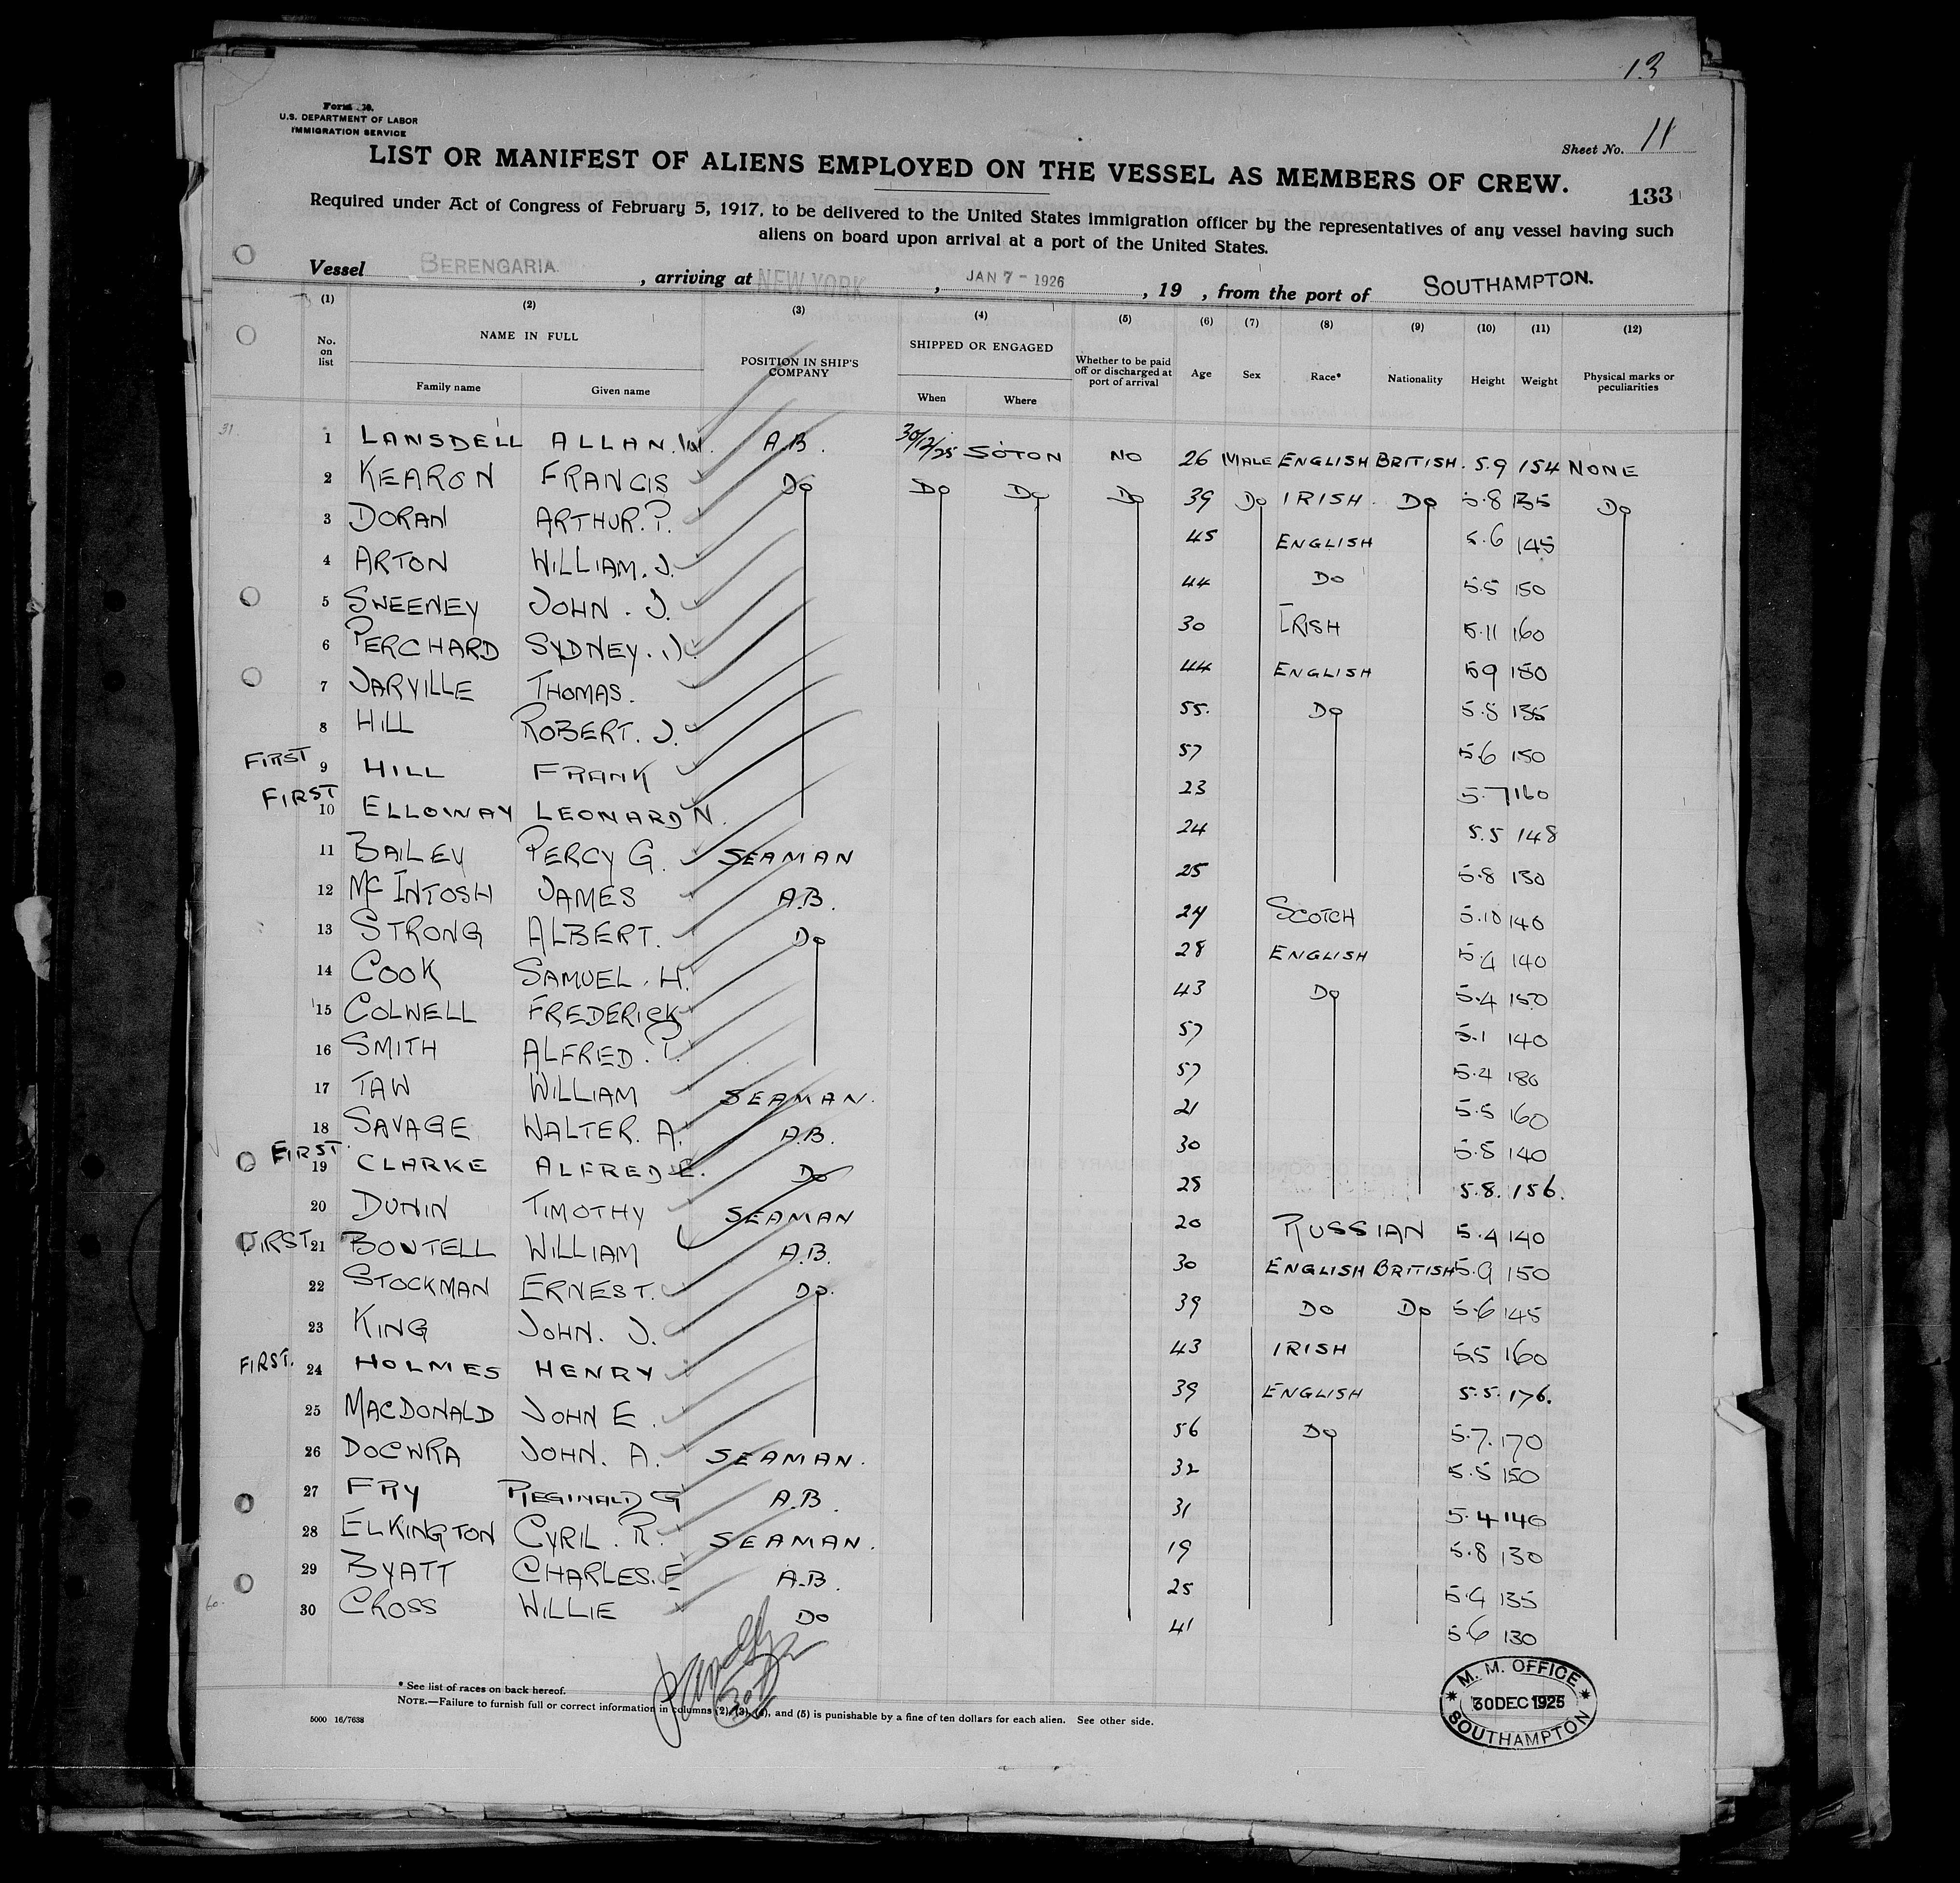 13
Form 70.
U.S. DEPARTMENT OF LABOR
IMMIGRATION SERVICE
Sheet No. 11
LIST OR MANIFEST OF ALIENS EMPLOYED ON THE VESSEL AS MEMBERS OF CREW.
133
Required under Act of Congress of February 5, 1917, to be delivered to the United States immigration officer by the representatives of any vessel having such
aliens on board upon arrival at a port of the United States.
Vessel BERENGARIA, arriving at NEW YORK, JAN 7 - 1926, 19 , from the port of SOUTHAMPTON.
(1) (2) (3) (4) (5) (6) (7) (8) (9) (10) (11) (12)
No. on list NAME IN FULL Family name Given name POSITION IN SHIP'S COMPANY SHIPPED OR ENGAGED When Where Whether to be paid off or discharged at port of arrival Age Sex Race* Nationality Height Weight Physical marks or peculiarities
31
1 LANSDELL ALLAN. W. A.B. 30/12/25 SOTON NO 26 MALE ENGLISH BRITISH. 5.9 154 NONE
2 KEARON FRANCIS Do Do Do Do 39 Do IRISH. Do 5.8 135 Do
3 DORAN ARTHUR. P. 45 ENGLISH 5.6 145
4 ARTON WILLIAM. J. 44 Do 5.5 150
5 SWEENEY JOHN. J. 30 IRISH 5.11 160
6 PERCHARD SYDNEY. J. 44 ENGLISH 5 9 180
7 JARVILLE THOMAS. 55. Do 5.8 135
8 HILL ROBERT. J. 57 5.6 150
FIRST 9 HILL FRANK 23 5.7 160
FIRST 10 ELLOWAY LEONARD N. 24 5.5 148
11 BAILEY PERCY G. SEAMAN 25 5.8 130
12 McINTOSH JAMES A.B. 24 SCOTCH 5.10 140
13 STRONG ALBERT. Do 28 ENGLISH 5.4 140
14 COOK SAMUEL. H. 43 Do 5.4 150
15 COLWELL FREDERICK 57 5.1 140
16 SMITH ALFRED. P. 57 5.4 180
17 TAW WILLIAM SEAMAN. 21 5.5 160
18 SAVAGE WALTER. A. A.B. 30 5.8 140
FIRST. 19 CLARKE ALFRED E. Do 28 5.8. 156.
20 DUNIN TIMOTHY SEAMAN 20 RUSSIAN 5.4 140
FIRST 21 BOUTELL WILLIAM A.B. 30 ENGLISH BRITISH 5.9 150
22 STOCKMAN ERNEST. Do. 39 Do Do 5.6 145
23 KING JOHN. J. 43 IRISH 5.5 160
FIRST. 24 HOLMES HENRY 39 ENGLISH 5.5. 176.
25 MACDONALD JOHN E. 56 Do 5.7. 170
26 DOCWRA JOHN. A. SEAMAN. 32 5.5 150
27 FRY REGINALD G A.B. 31 5.4 140
28 ELKINGTON CYRIL. R. SEAMAN. 19 5.8 130
29 BYATT CHARLES. E A.B. 25 5.4 135
60. 30 CROSS WILLIE Do 41 5.6 130
30
* See list of races on back hereof.
NOTE.—Failure to furnish full or correct information in columns (2), (3), (4), and (5) is punishable by a fine of ten dollars for each alien. See other side.
5000 16/7638
M. M. OFFICE
30 DEC 1925
SOUTHAMPTON